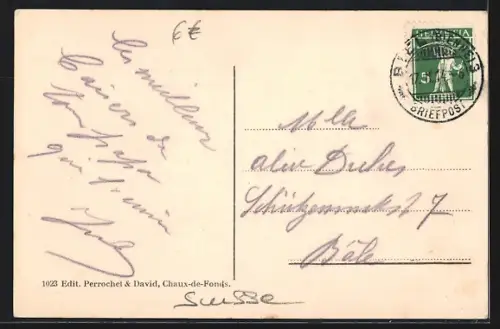 6€
Les meilleurs
baisers de
ton papa
qui t'aime
Jules
1023 Edit. Perrochet & David, Chaux-de-Fonds.
HELVETIA
5
BRIEFPOST
Mlle
Schützenmatt 7
Bâle
Suisse